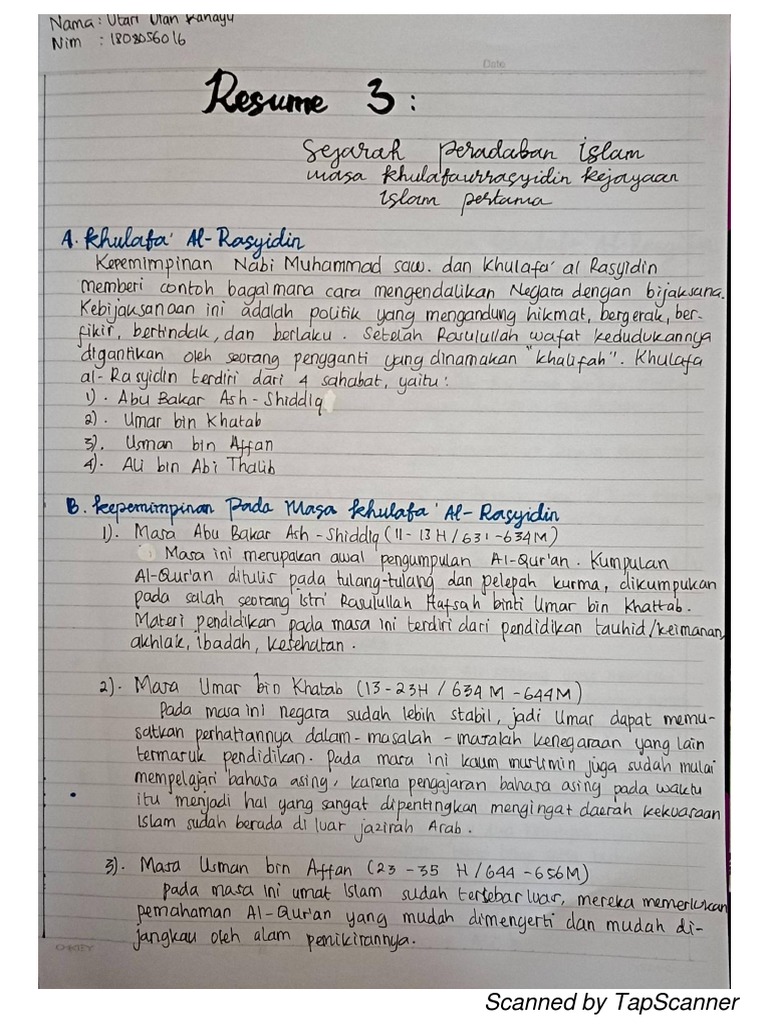 Nama : Utari Ulan Kanayu
Nim : 1808056016
Date
Resume 3 :
Sejarah peradaban islam
masa khulafaurrasyidin kejayaan
islam pertama
A. Khulafa' Al-Rasyidin
Kepemimpinan Nabi Muhammad saw. dan Khulafa' al Rasyidin
memberi contoh bagaimana cara mengendalikan Negara dengan bijaksana.
Kebijaksanaan ini adalah politik yang mengandung hikmat, bergerak, ber-
fikir, bertindak, dan berlaku. Setelah Rasulullah wafat kedudukannya
digantikan oleh seorang pengganti yang dinamakan "khalifah". Khulafa
al-Rasyidin terdiri dari 4 sahabat, yaitu :
1). Abu Bakar Ash-Shiddiq
2). Umar bin Khatab
3). Usman bin Affan
4). Ali bin Abi Thalib
B. Kepemimpinan Pada Masa Khulafa' Al-Rasyidin
1). Masa Abu Bakar Ash-Shiddiq (11-13 H / 631-634 M)
Masa ini merupakan awal pengumpulan Al-Qur'an. Kumpulan
Al-Qur'an ditulis pada tulang-tulang dan pelepah kurma, dikumpukan
pada salah seorang istri Rasulullah Hafsah binti Umar bin Khattab.
Materi pendidikan pada masa ini terdiri dari pendidikan tauhid/keimanan,
akhlak, ibadah, kesehatan.
2). Masa Umar bin Khatab (13-23H / 634 M - 644 M)
Pada masa ini negara sudah lebih stabil, jadi Umar dapat memu-
satkan perhatiannya dalam-masalah-masalah kenegaraan yang lain
termasuk pendidikan. Pada masa ini kaum muslimin juga sudah mulai
mempelajari bahasa asing, karena pengajaran bahasa asing pada waktu
itu menjadi hal yang sangat dipentingkan mengingat daerah kekuasaan
Islam sudah berada di luar jazirah Arab.
3). Masa Usman bin Affan (23-35 H / 644-656M)
pada masa ini umat Islam sudah tersebar luar, mereka memerlukan
pemahaman Al-Qur'an yang mudah dimengerti dan mudah di-
jangkau oleh alam pemikirannya.
O-KEY
Scanned by TapScanner